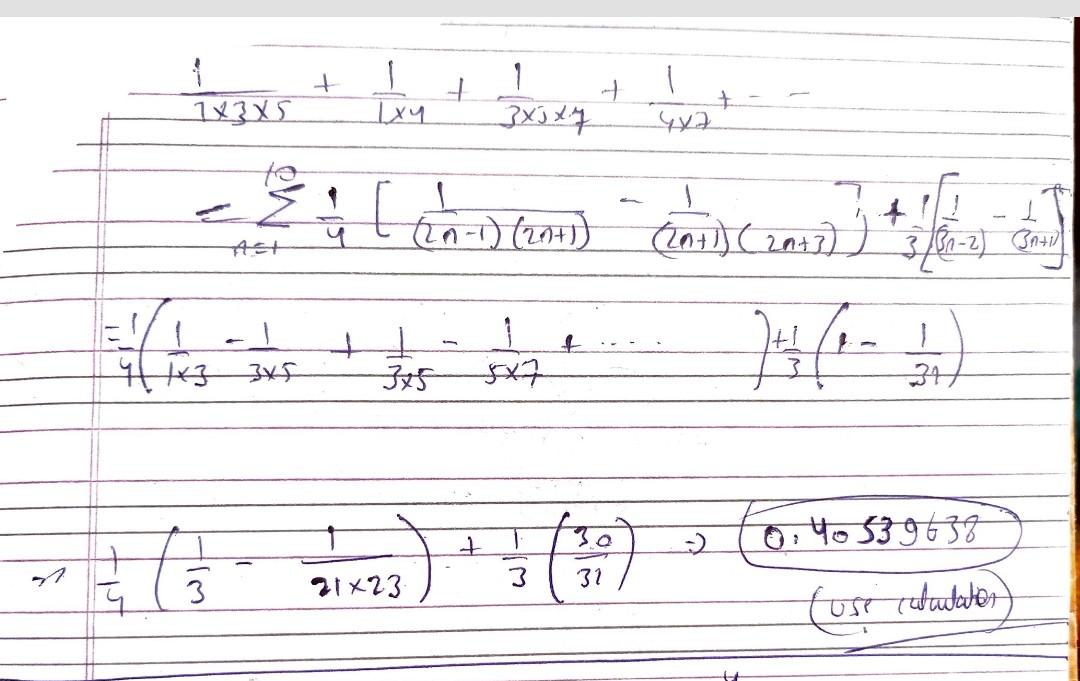 1/(1×3×5) + 1/(1×4) + 1/(3×5×7) + 1/(4×7) + - -
= 10 Σ n=1 1/4 [ 1/((2n-1)(2n+1)) - 1/((2n+1)(2n+3)) ] + 1/3 [ 1/(3n-2) - 1/(3n+1) ]
= 1/4 ( 1/(1×3) - 1/(3×5) + 1/(3×5) - 1/(5×7) + ..... ) + 1/3 ( 1 - 1/31 )
=> 1/4 ( 1/3 - 1/(21×23) ) + 1/3 ( 30/31 ) => 0.40539638
(use calculator)